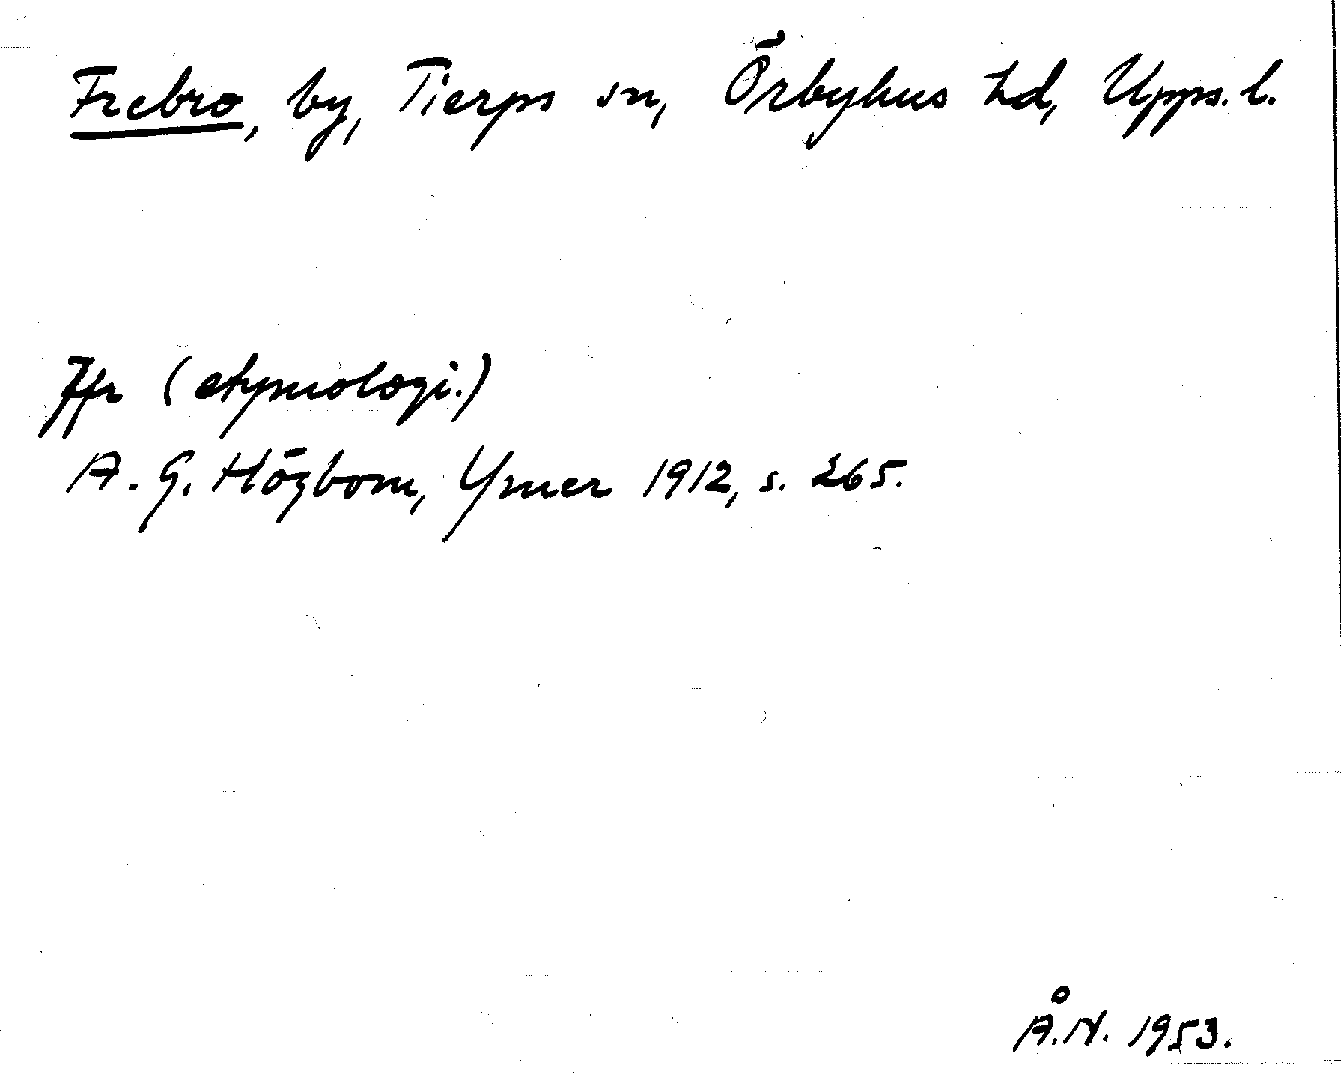 Frebro, by, Tierps sn, Örbyhus hd, Upps. l.
Jfr (etymologi.)
A. G. Högbom, Ymer 1912, s. 265.
Å.N. 1953.